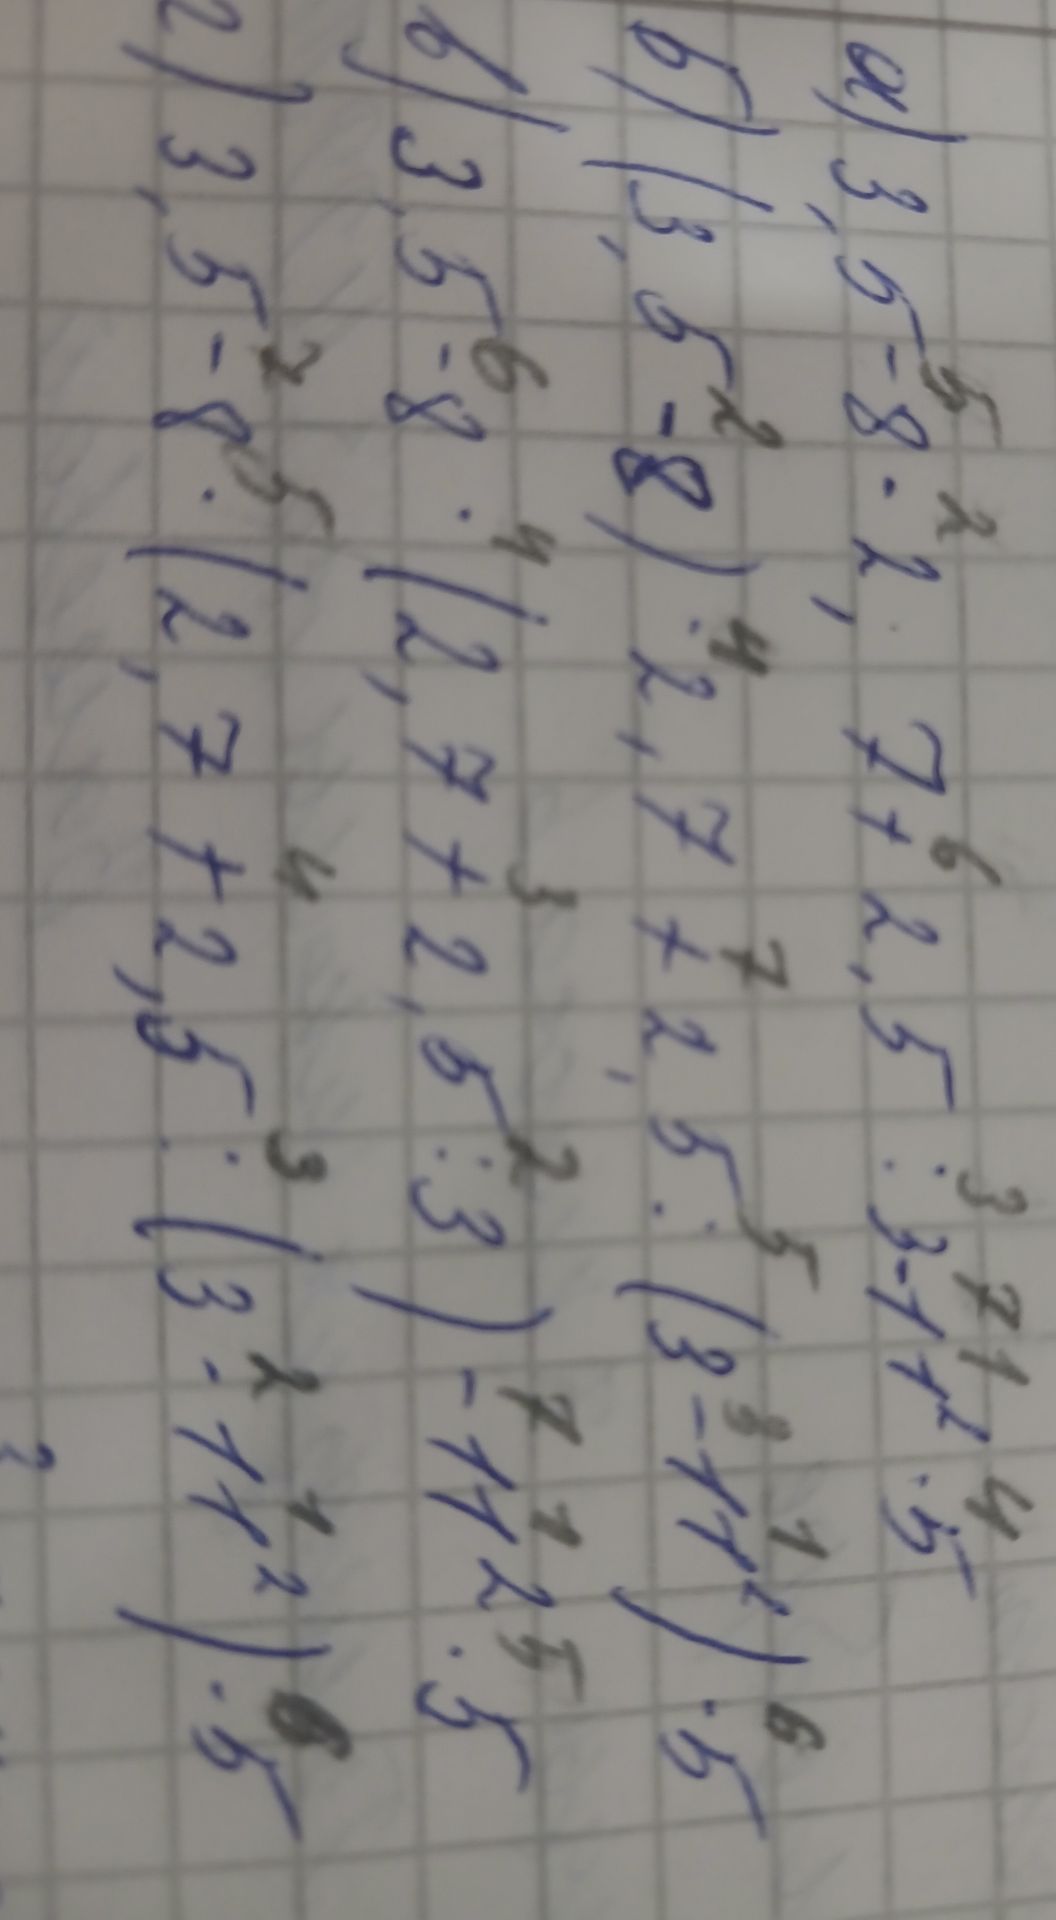 а) 3,5 - 8 · 2,7 + 2,5 : 3 - 11² · 5
5 2 6 3 7 1 4
б) (3,5 - 8) · 2,7 + 2,5 : (3 - 11²) · 5
2 4 7 5 3 1 6
в) 3,5 - 8 · (2,7 + 2,5 : 3) - 11² · 5
6 4 3 2 7 1 5
г) 3,5 - 8 · (2,7 + 2,5 : (3 - 11²) · 5
7 5 4 3 2 1 6
2